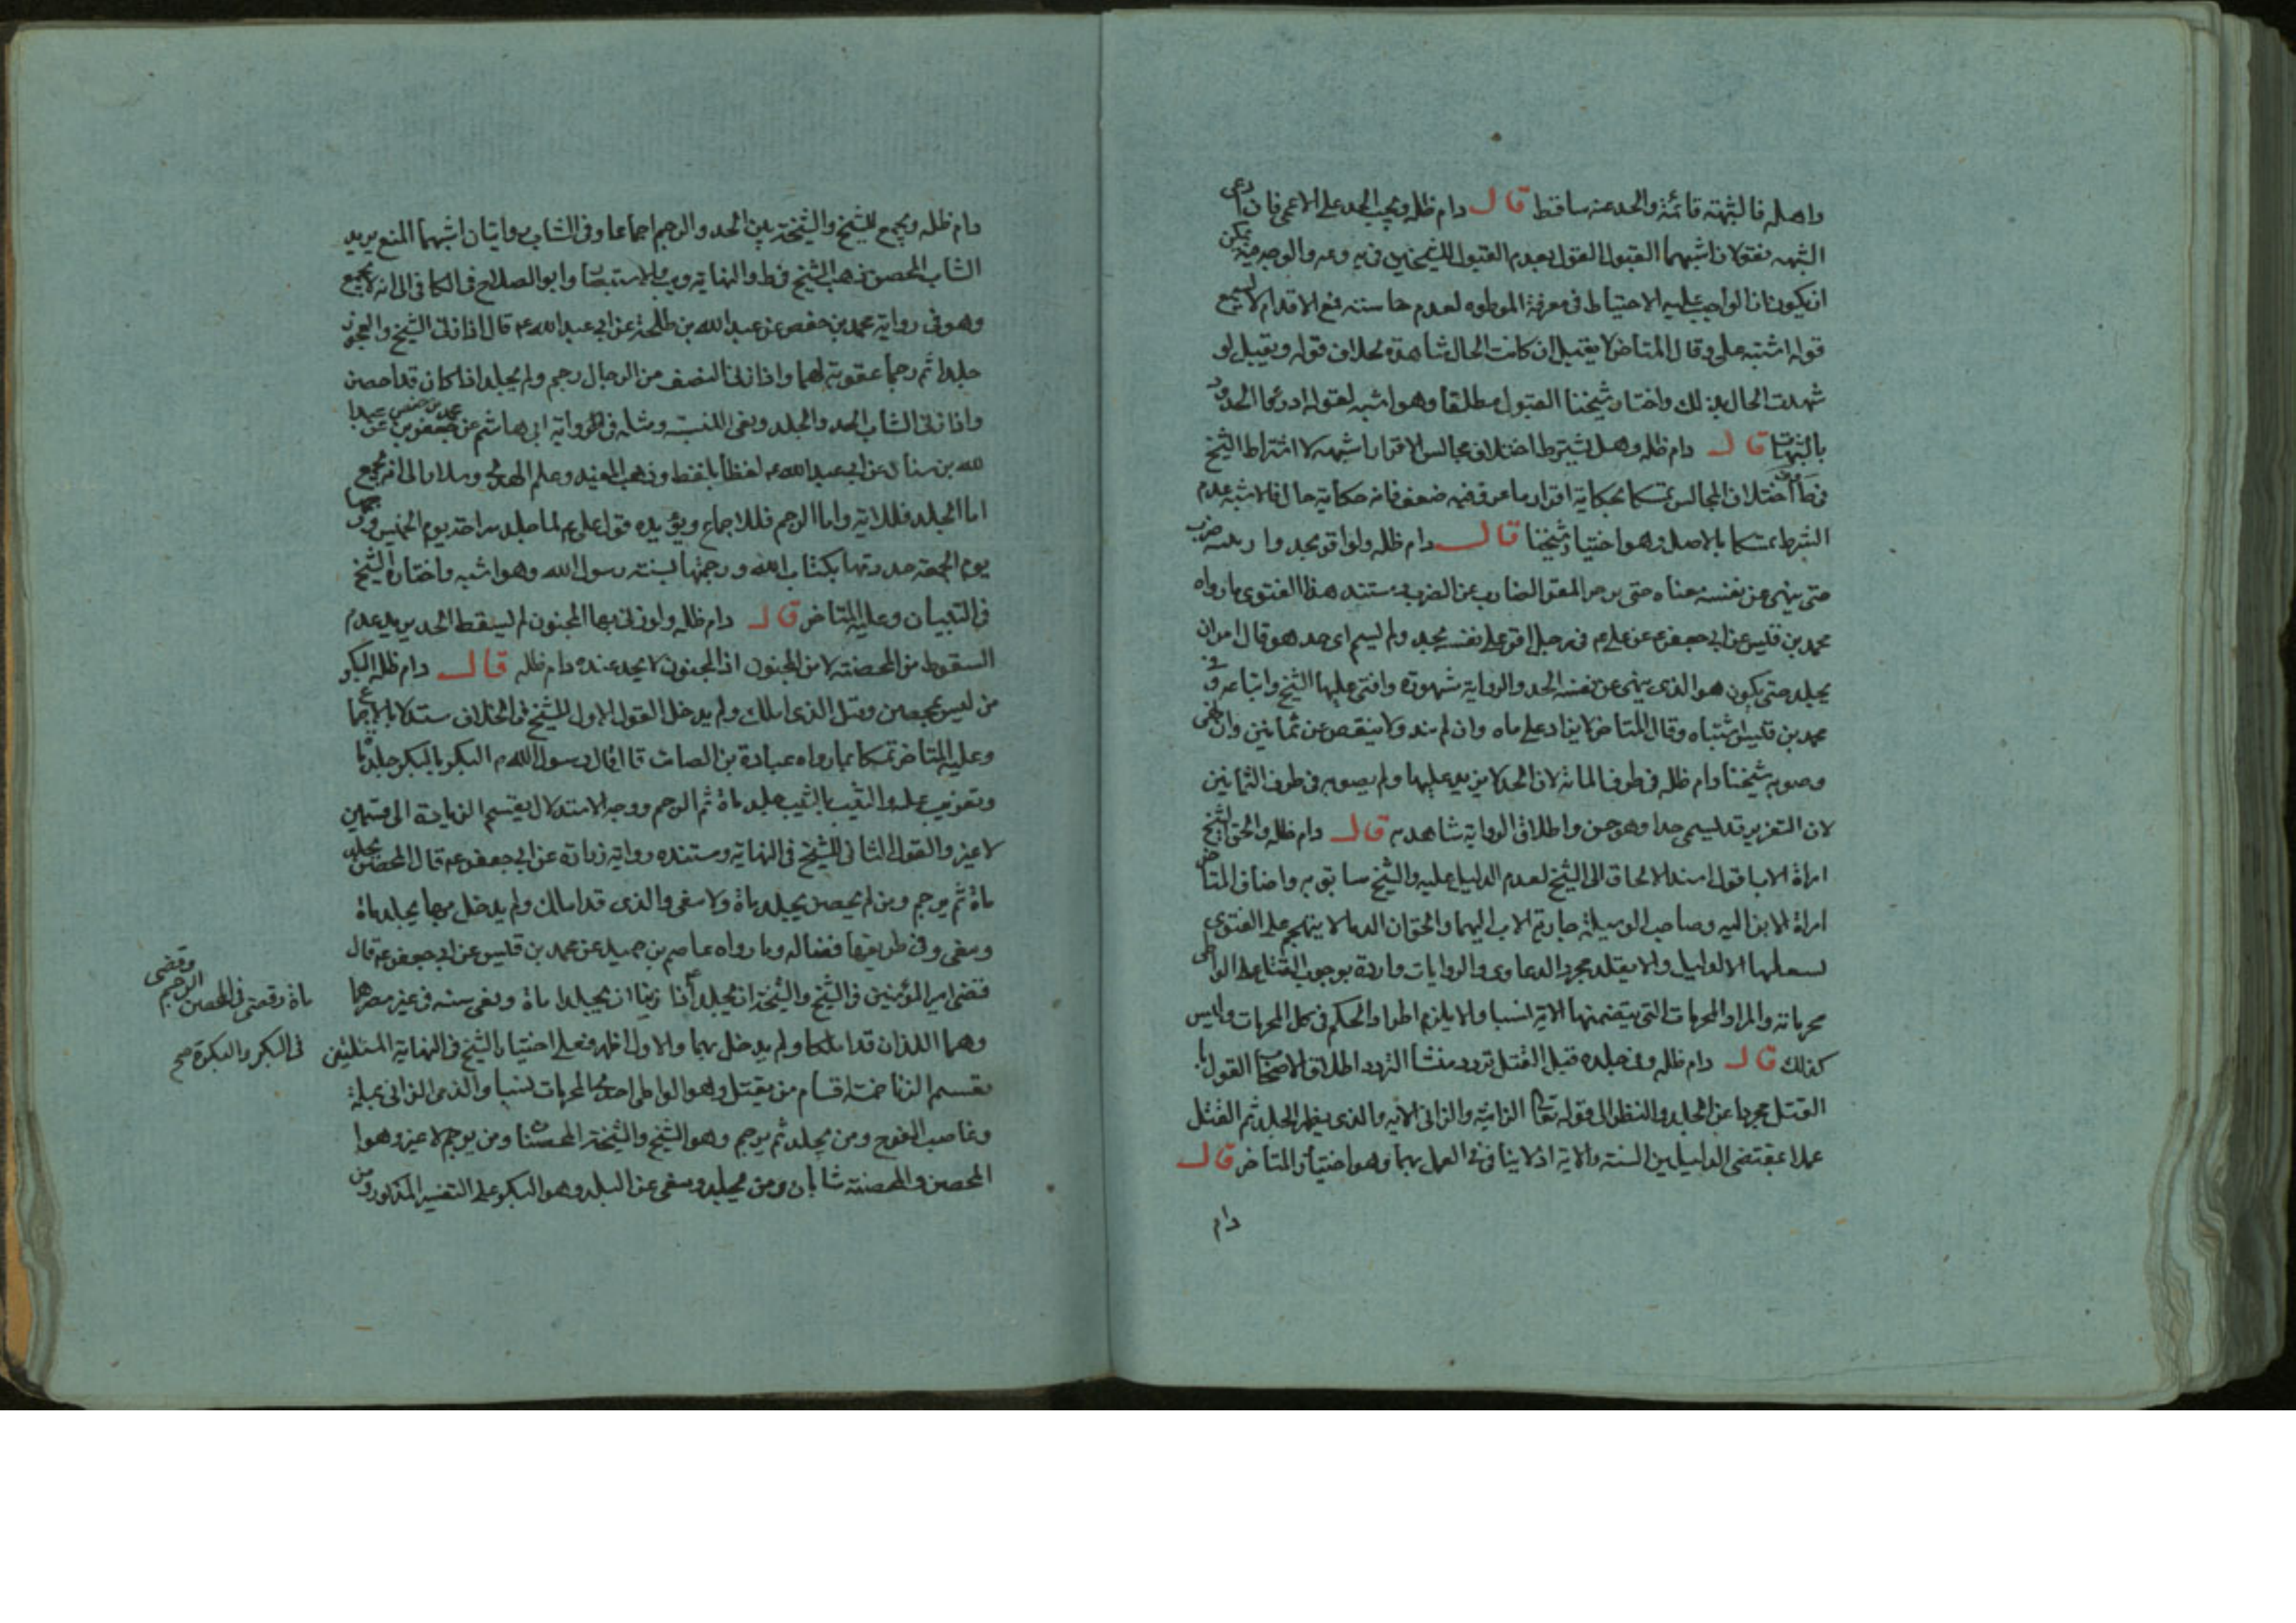 واهله فالشبهة قائمة والحد عنه ساقط قال دام ظله ويجب الحد على الاعمى فان ادعى
الشبهه فقولان اشبههما القبول القول بعدم القبول للشيخين في يه وعه والوجه فيه يمكن
ان يكون ان الواجب عليه الاحتياط في معرفة الموطوه لعدم حاسته فمع الاقدام لا يسمع
قوله اشتبه على وقال المتاخر لا يقبل ان كانت الحال شاهدة بخلاف قوله ويقبل لو
شهدت الحال بذلك واختار شيخنا القبول مطلقا وهو اشبه لقوله ادرئوا الحدود
بالشبهات قال دام ظله وهل يشترط اختلاف مجالس الاقرار اشبهه لا اشتراط الشيخ
في ط وف اختلاف المجالس تمسكا بحكاية اقرار ماعز وفيه ضعف فانه حكاية حال فالاشبه عدم
الشرط تمسكا بالاصل وهو اختيار شيخنا قال دام ظله ولو اقر بحد ولم يبينه ضرب
حتى ينهى عن نفسه معناه حتى يزجر المقر الضارب عن الضرب ومستند هذا الفتوى ما رواه
محمد بن قيس عن ابي جعفر عه عن علي م في رجل اقر على نفسه بحد ولم يسم اى حد هو قال امر ان
يجلد حتى يكون هو الذى ينهى عن نفسه الحد والرواية مشهورة وافتى عليها الشيخ واتباعه وفي
محمد بن قيس اشتباه وقال المتاخر لا يزاد على ماه وان لم ينه ولا ينقص عن ثمانين وان نهى
وصوبه شيخنا دام ظله في طرف المائه لان الحد لا يزيد عليها ولم يصوبه في طرف الثمانين
لان التعزير قد يسمى حدا وهو حسن واطلاق الرواية شاهد به قال دام ظله والحق الشيخ
امراة الاب اقول اسند الالحاق الى الشيخ لعدم الدليل عليه والشيخ سابق به واضاف المتاخر
امراة الابن اليه وصاحب الوسيلة جارية الاب اليهما والحق ان الدما لا يتهجم على الفتوى
بسفكها الا لدليل ولا يقلد مجرد الدعاوى والروايات واردة بوجوب القتل على الواطى
محرماته والمراد المحرمات التي يتضمنها الاية نسبا ولا يلزم اطراد الحكم في كل المحرمات وليس
كذلك قال دام ظله وفي جلده قبل القتل تردد منشأ التردد اطلاق الاصحاب القول با
القتل مجردا عن الجلد والنظر الى قوله تعالى الزانية والزانى الايه والذى يظهر الجلد ثم القتل
عملا بمقتضى الدليلين السنة والاية اذ لا ينافى العمل بهما وهو اختيار المتاخر قال
دام
دام ظله ويجمع للشيخ والشيخة بين الحد والرجم اجماعا وفي الشاب روايتان اشبههما المنع يريد
الشاب المحصن ذهب الشيخ في ط والنهاية ويب والاستبصار وابو الصلاح في الكافي الى انه لا يجمع
وهو في رواية محمد بن حفص عن عبد الله بن طلحة عن ابي عبد الله عه قال اذا زنى الشيخ والعجوز
جلدا ثم رجما عقوبة لهما واذا زنى النصف من الرجال رجم ولم يجلد اذا كان قد احصن
واذا زنى الشاب الحدث الجلد ونفى السنة ومثله في رواية ابي هاشم عن جعفر بن محمد بن حفص عن عبدا
لله بن سنان عن ابي عبد الله عه لفظا بلفظ وذهب المفيد وعلم الهدى وسلار الى انه يجمع
اما الجلد فللاية واما الرجم فللاجماع ويؤيده قول علي عه لما جلد سراحة يوم الخميس ورجمها
يوم الجمعة حددتها بكتاب الله ورجمتها بسنة رسول الله وهو اشبه واختاره الشيخ
في التبيان وعليه المتاخر قال دام ظله ولو زنى بها المجنون لم يسقط الحد يريد عدم
السقوط من المحصنة لا من المجنون اذ المجنون لا يحد عنده دام ظله قال دام ظله البكر
من ليس بمحصن وقيل الذى املك ولم يدخل القول الاول للشيخ في الخلاف مستدلا بالاجماع
وعليه المتاخر تمسكا بما رواه عبادة بن الصامت قال قال رسول الله م البكر بالبكر جلد ماة
وتغريب عام والثيب بالثيب جلد ماة ثم الرجم ووجه الاستدلال تقسيم الزناية الى قسمين
لا غير والقول الثاني للشيخ في النهاية ومستنده رواية زرارة عن ابي جعفر عه قال المحصن يجلد
ماة ثم يرجم ومن لم يحصن يجلد ماة ولا ينفى والذى قد املك ولم يدخل بها يجلد ماة
وينفى وفي طريقها فضاله وما رواه عاصم بن حميد عن محمد بن قيس عن ابي جعفر عه قال
قضى امير المؤمنين في الشيخ والشيخة ان يجلدا ماة وقضى في المحصن الرجم وقضى
في البكر والبكرة صح اذا زنيا ان يجلدا ماة ونفى سنه في غير مصرهما
وهما اللذان قد املكا ولم يدخل بهما والاول اظهر فعلى اختيار الشيخ في النهاية
ينقسم الزنا خمسة اقسام من يقتل وهو الواطى احدى المحرمات نسبا والذمى الزانى بمسلمة
وغاصب الفرج ومن يجلد ثم يرجم وهو الشيخ والشيخة المحصنان ومن يرجم لا غير وهو
المحصن والمحصنة شابان ومن يجلد وينفى عن البلد وهو البكر على التفسير المذكور ومن